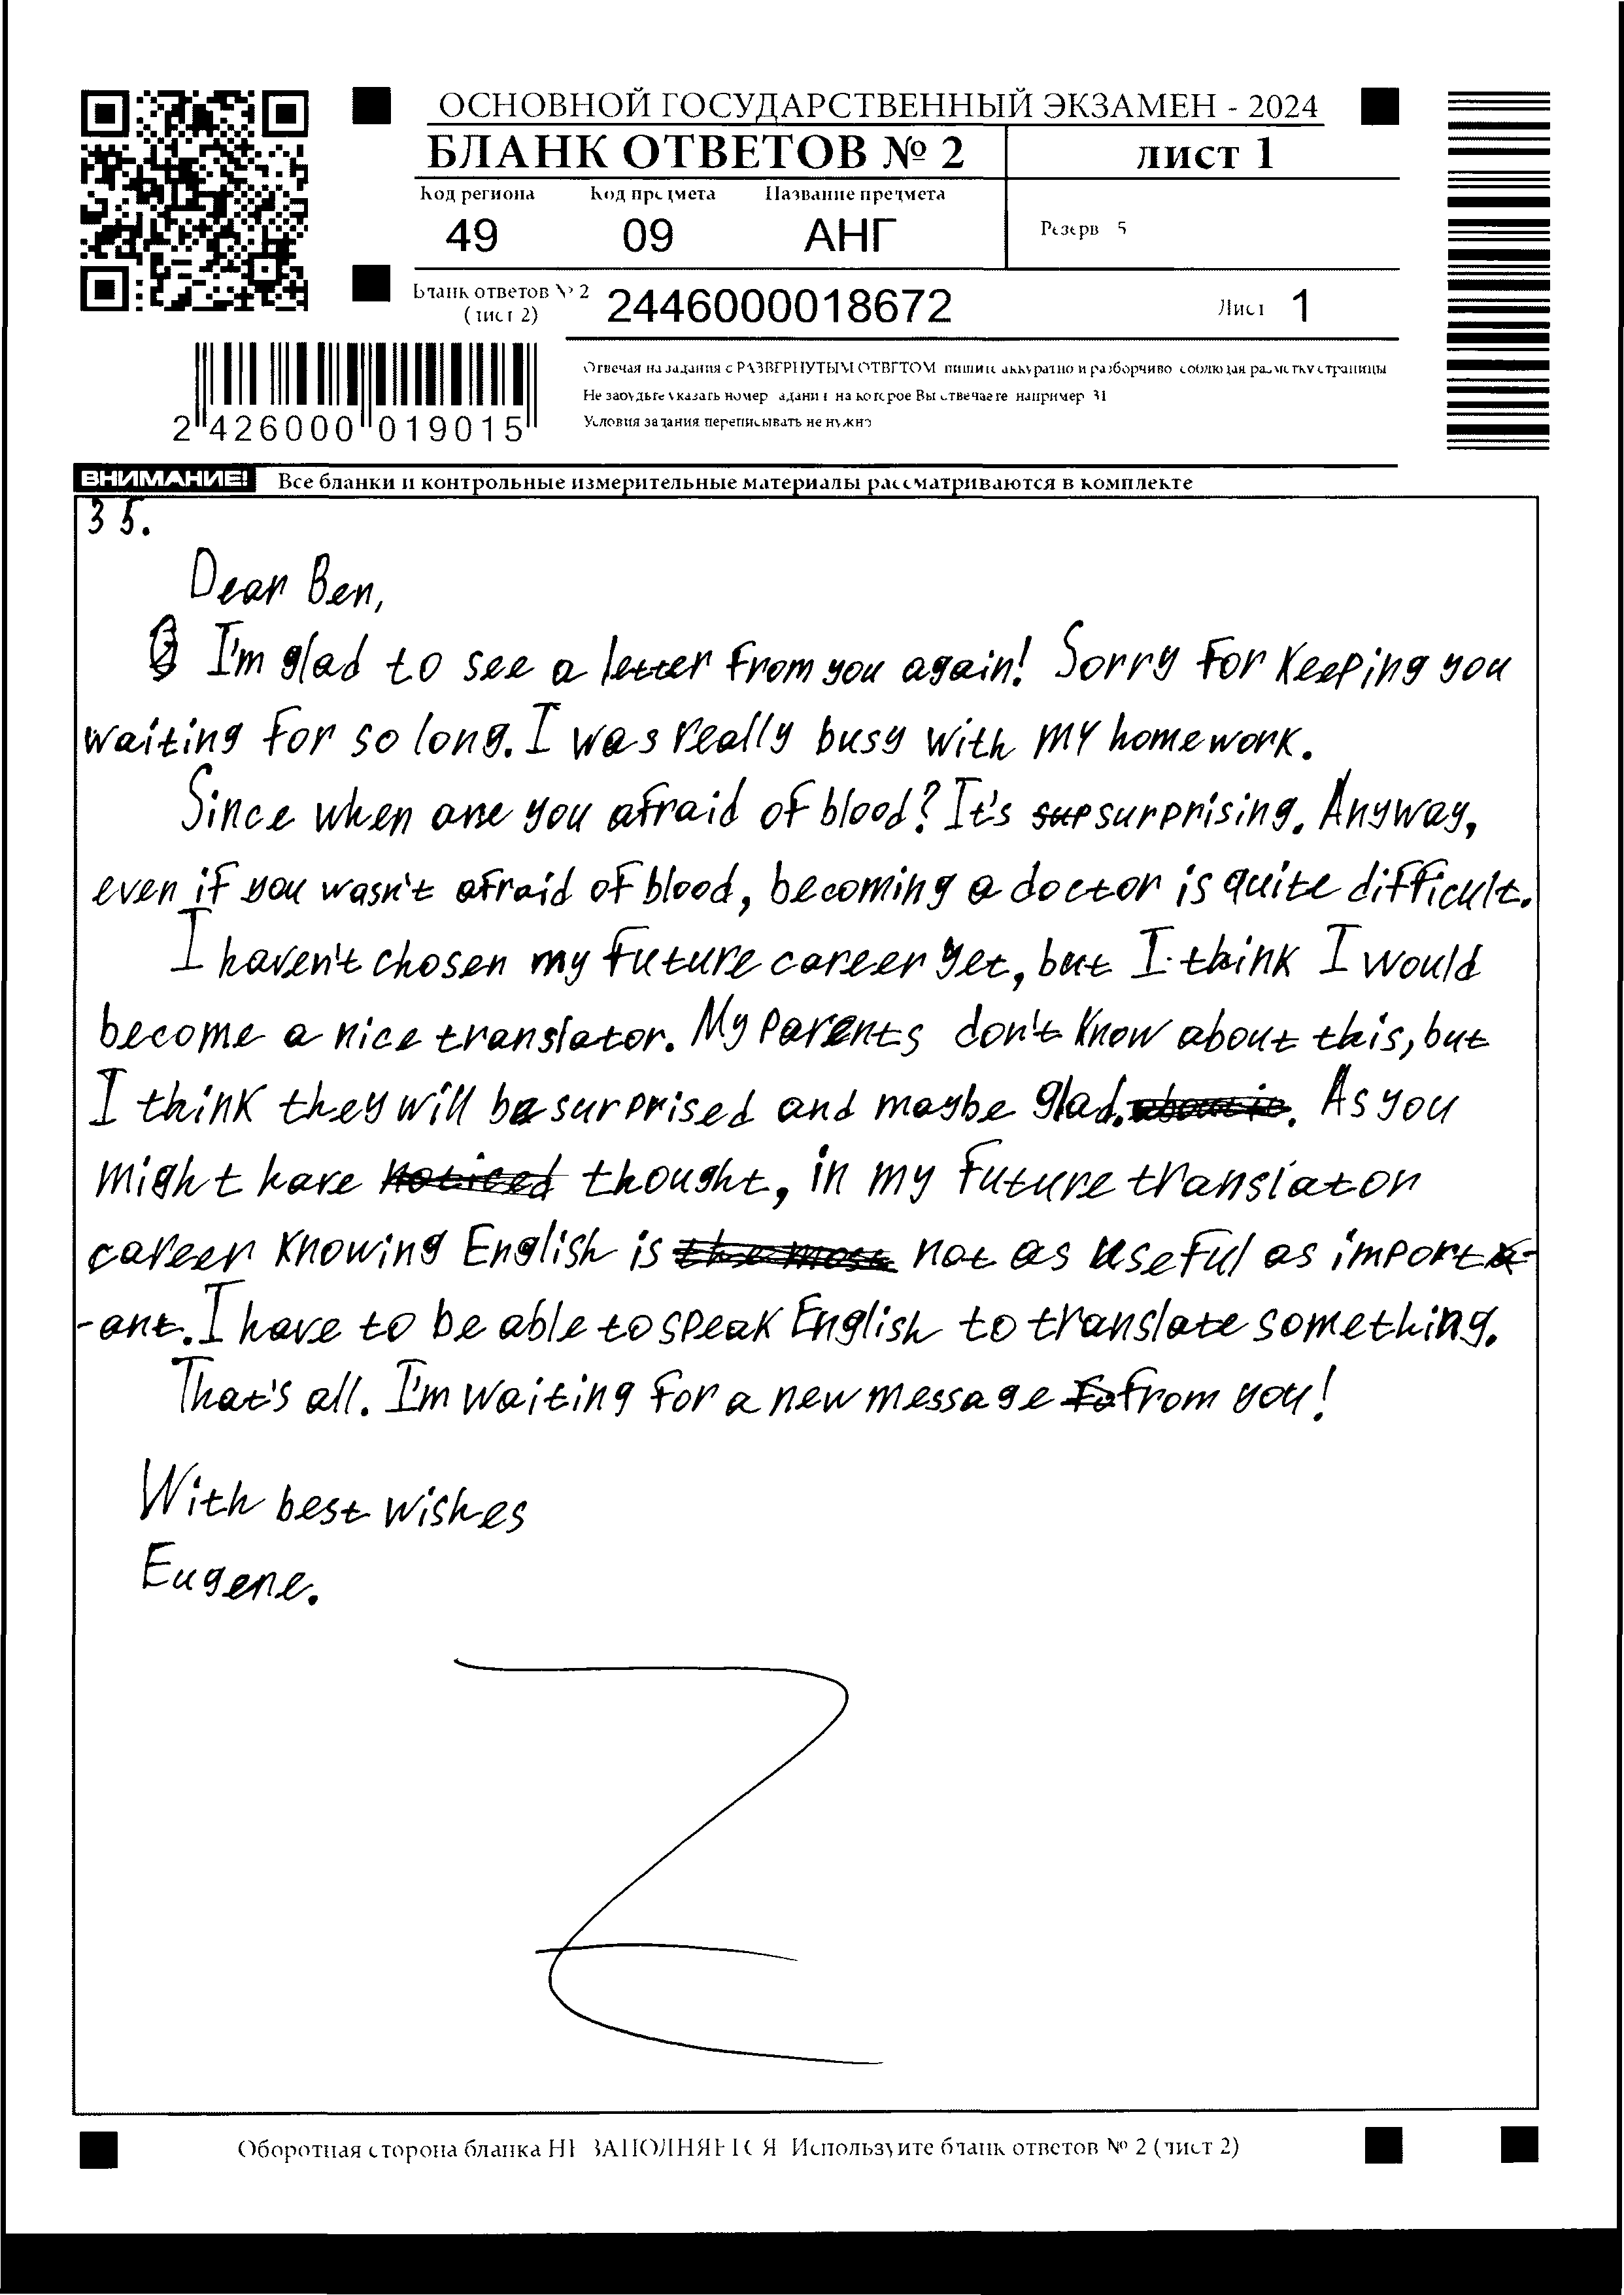 ОСНОВНОЙ ГОСУДАРСТВЕННЫЙ ЭКЗАМЕН - 2024
БЛАНК ОТВЕТОВ № 2
лист 1
Код региона Код предмета Название предмета
49 09 АНГ
Резерв 5
Бланк ответов № 2
(лист 2)
2446000018672
Лист 1
Отвечая на задания с РАЗВЕРНУТЫМ ОТВЕТОМ пишите аккуратно и разборчиво соблюдая разметку страницы
Не забудьте указать номер задания на которое Вы отвечаете например 31
Условия задания переписывать не нужно
2 426000 019015
ВНИМАНИЕ! Все бланки и контрольные измерительные материалы рассматриваются в комплекте
35.
Dear Ben,
I'm glad to see a letter from you again! Sorry for keeping you
waiting for so long. I was really busy with my homework.
Since when are you afraid of blood? It's sup surprising. Anyway,
even if you wasn't afraid of blood, becoming a doctor is quite difficult.
I haven't chosen my future career yet, but I think I would
become a nice translator. My parents don't know about this, but
I think they will be surprised and maybe glad. about it. As you
might have noticed thought, in my future translator
career knowing English is the most not as useful as import-
-ant. I have to be able to speak English to translate something.
That's all. I'm waiting for a new message fo from you!
With best wishes
Eugene.
Оборотная сторона бланка НЕ ЗАПОЛНЯЕТСЯ Используйте бланк ответов № 2 (лист 2)